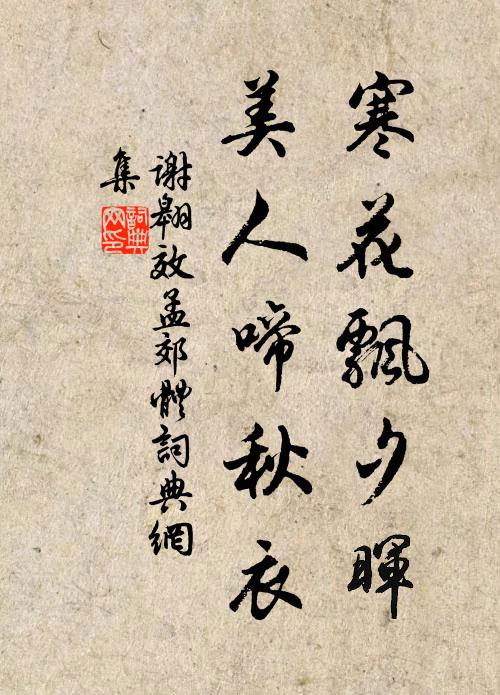 寒花飄夕暉
美人啼秋衣
謝翱效孟郊體詞典網
集
詞典
网印